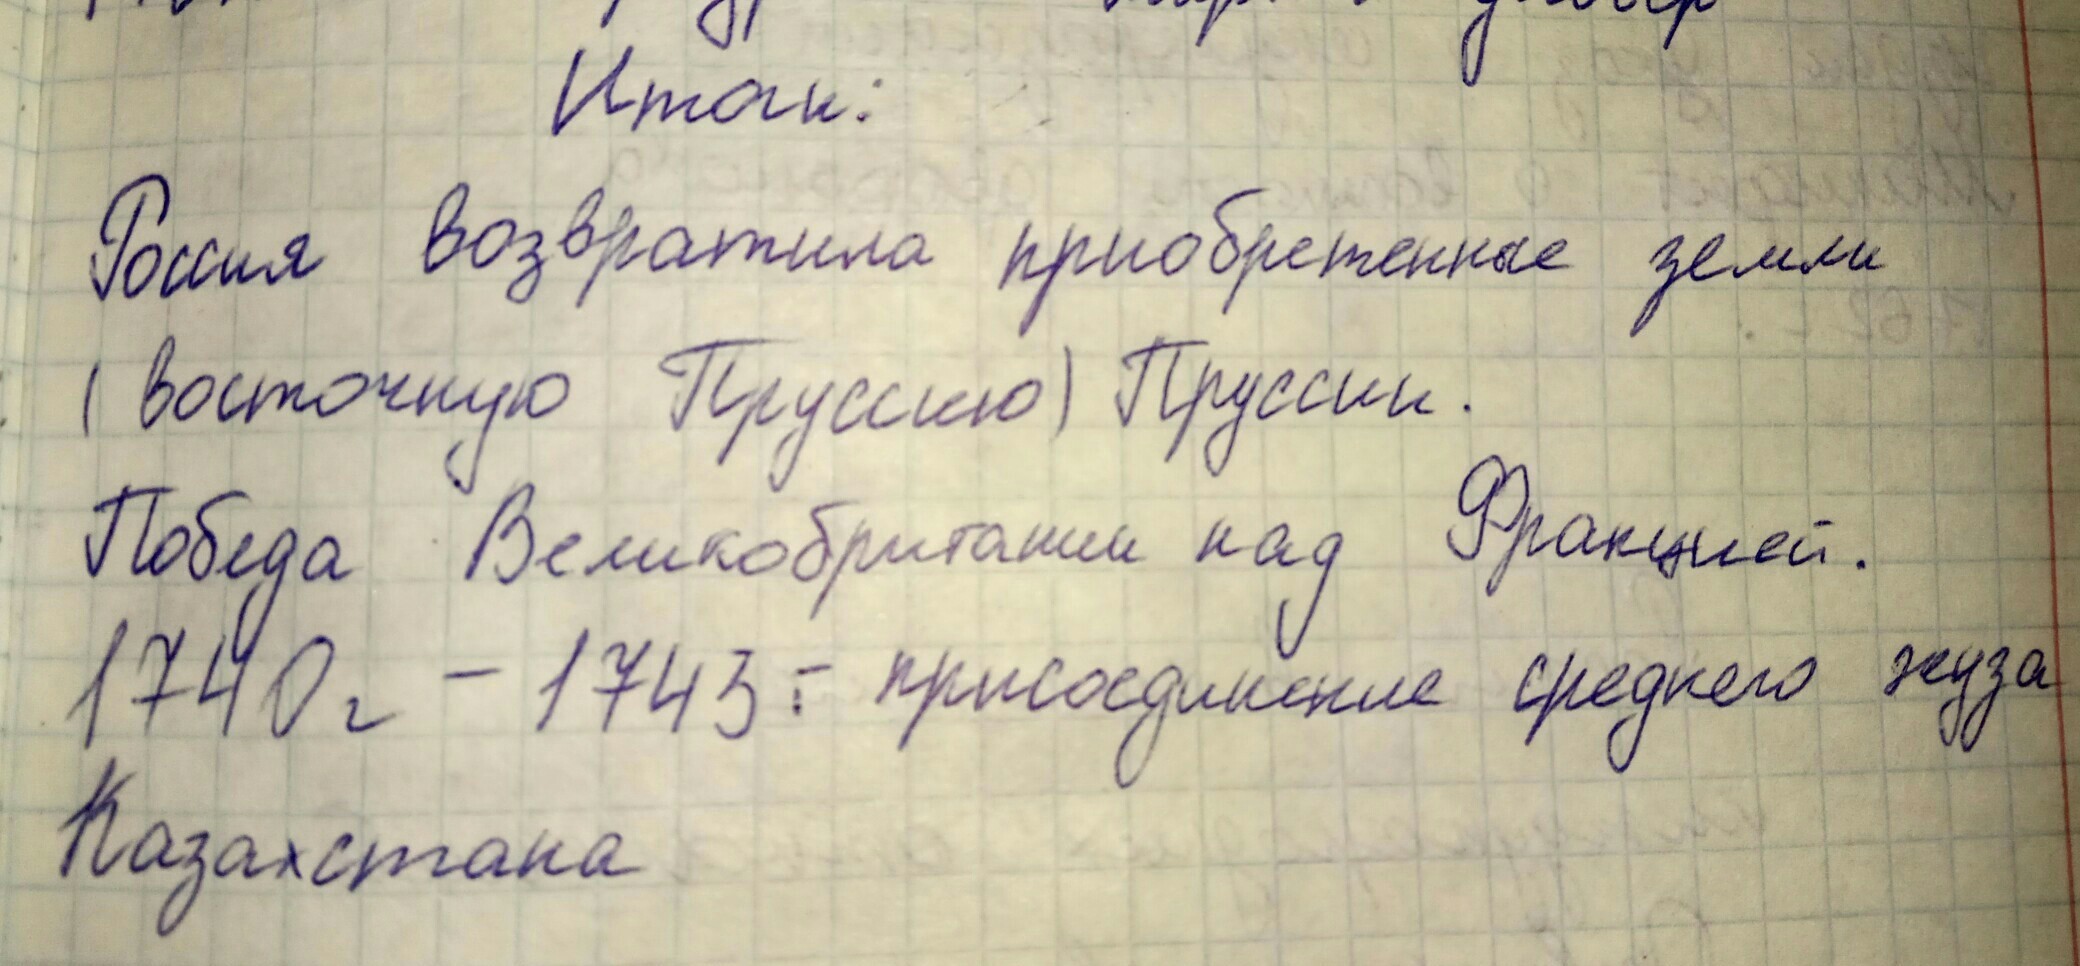 Итоги:
Россия возвратила приобретенные земли
(восточную Пруссию) Пруссии.
Победа Великобритании над Францией.
1740г - 1743г - присоединение среднего жуза
Казахстана